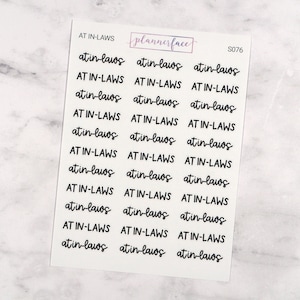 AT IN-LAWS plannerface S076
at in-laws at in-laws at in-laws
AT IN-LAWS AT IN-LAWS AT IN-LAWS
at in-laws at in-laws at in-laws
AT IN-LAWS AT IN-LAWS AT IN-LAWS
at in-laws at in-laws at in-laws
AT IN-LAWS AT IN-LAWS AT IN-LAWS
at in-laws at in-laws at in-laws
AT IN-LAWS AT IN-LAWS AT IN-LAWS
at in-laws at in-laws at in-laws
AT IN-LAWS AT IN-LAWS AT IN-LAWS
at in-laws at in-laws at in-laws